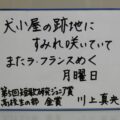 犬小屋の跡地に
すみれ咲いていて
またラ・フランスめく
月曜日
第5回短歌研究ジュニア賞
高校生の部 金賞
川上真央